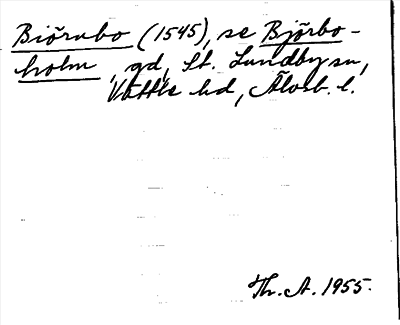 Biörnbo (1545), se Bjõrbo-
holm, gd, St. Lundby sn,
Vättle hd, Älvsb. l.
Th. A. 1955.